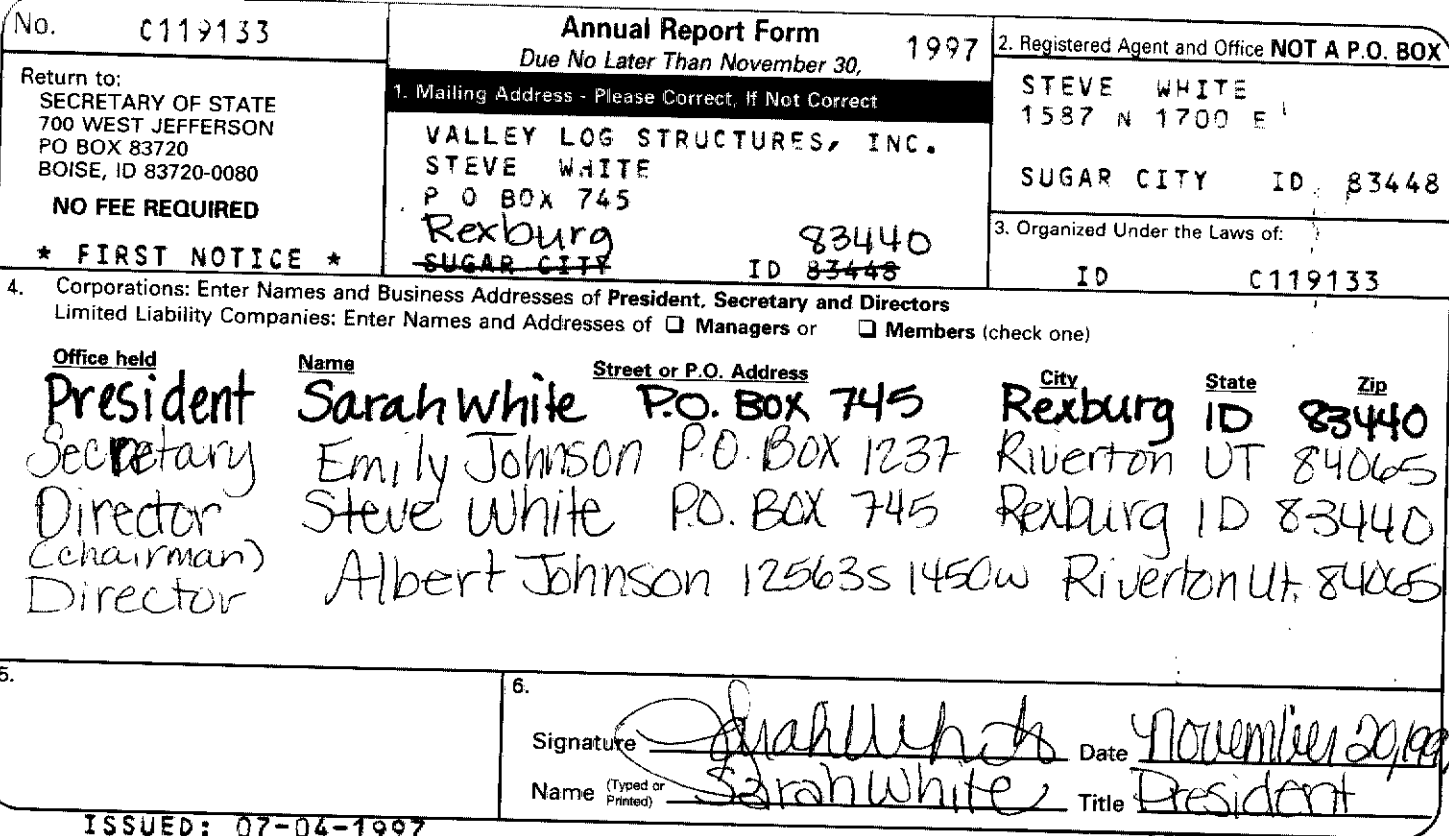 No. C119133
Return to:
SECRETARY OF STATE
700 WEST JEFFERSON
PO BOX 83720
BOISE, ID 83720-0080
NO FEE REQUIRED
* FIRST NOTICE *
Annual Report Form 1997
Due No Later Than November 30,
1. Mailing Address - Please Correct, If Not Correct
VALLEY LOG STRUCTURES, INC.
STEVE WHITE
P O BOX 745
Rexburg 83440
SUGAR CITY ID 83448
2. Registered Agent and Office NOT A P.O. BOX
STEVE WHITE
1587 N 1700 E
SUGAR CITY ID 83448
3. Organized Under the Laws of:
ID C119133
4. Corporations: Enter Names and Business Addresses of President, Secretary and Directors
Limited Liability Companies: Enter Names and Addresses of ❑ Managers or ❑ Members (check one)
Office held Name Street or P.O. Address City State Zip
President Sarah White P.O. BOX 745 Rexburg ID 83440
Secretary Emily Johnson P.O. BOX 1237 Riverton UT 84065
Director Steve White P.O. BOX 745 Rexburg ID 83440
(chairman)
Director Albert Johnson 12563S 1450W Riverton Ut. 84065
5.
6.
Signature Sarah White Date November 20, 199
Name (Typed or Printed) Sarah White Title President
ISSUED: 07-04-1997